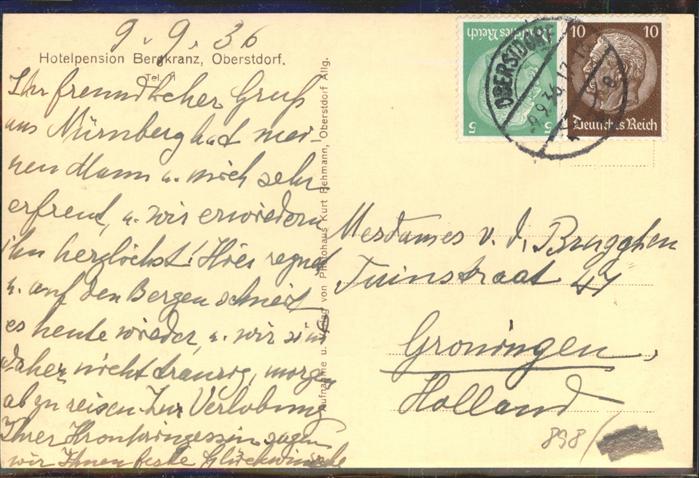 9.9.36
Hotelpension Bergkranz, Oberstdorf.
Tel.
Ihr freundlicher Gruß
aus Nürnberg hat mei-
nen Mann u. mich sehr
erfreut, u. wir erwiedern
ihn herzlichst! Hier regnet
u. auf den Bergen schneit
es heute wieder, u. wir sind
daher nicht traurig, morgen
abzureisen. Zur Verlobung
Ihrer Kronprinzessin sagen
wir Ihnen beste Glückwünsche
Aufnahme u. Verlag von Photohaus Kurt Rehmann, Oberstdorf Allg.
5
Deutsches Reich
10 10
Deutsches Reich
OBERSTDORF
9.9.36.17
Mesdames v. d. Brugghen
Tuinstraat
Groningen,
Holland
898/